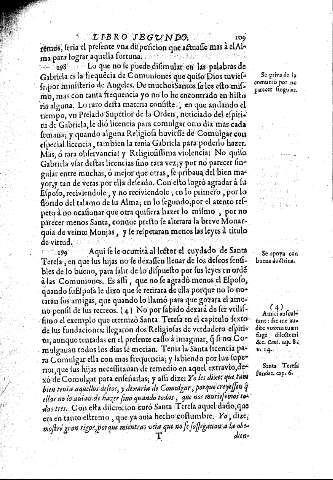 LIBRO SEGUNDO. 109
remos, seria el presente vna disposicion que actuasse mas à el Al-
ma para lograr aquella fortuna.
298 Lo que no se puede dissimular en las palabras de
Gabriela es la frequẽcia de Comuniones que quiso Dios tuvies-
se por ministerio de Angeles. De muchos Santos se lee esto mis-
mo, mas con tanta frequencia yo no lo he encontrado en histo-
ria alguna. Lo raro desta materia consiste, en que andando el
tiempo, vn Prelado Superior de la Orden, noticiado del espiri-
tu de Gabriela, le diò licencia para comulgar otro dia mas cada
semana; y quando alguna Religiosa huviesse de Comulgar con
especial licencia, tambien la tenia Gabriela para poderlo hazer.
Mas, ò rara observancia! y Religiosissima violencia! No quiso
Gabriela vsar destas licencias sino tara vez; y por no parecer sin-
gular entre muchas, ò mejor que otras, se privaba del bien ma-
yor, y tan de veras por ella deseado. Con esto logrò agradar à su
Esposo, reciviendole, y no reciviendole, en lo primero, por lo
hondo del talamo de su Alma; en lo segundo, por el atento res-
peto à no ocasionar que otra quisiera hazer lo mismo, por no
parecer menos Santa, con que presto se alterara la breve Monar-
quia de veinte Monjas, y se respetaran menos las leyes à titulo
de virtud.
Se priva de la
comunio por no
parecer singular.
299 Aqui se le ocurrirà al lector el cuydado de Santa
Teresa, en que sus hijas no se dexassen llevar de los deseos sensi-
bles de lo bueno, para salir de lo dispuesto por sus leyes en ordẽ
à las Comuniones. Es assi, que no se agradò menos el Esposo,
quando su Esposa le dixo que se retirara de ella porque no lo no-
taran sus amigas, que quando lo llamò para que gozara el ame-
no pensil de sus recreos. (4) No por sabido dexarà de ser vtilis-
simo el exemplo que terminò Santa Teresa en el capitulo sexto
de sus fundaciones: llegaron dos Religiosas de verdadero espiri-
tu, aunque tentadas en el presente caso à imaginar, q̃ si no Co-
mulgaban todos los dias se morian. Tenia la Santa licencia pa-
ra Comulgar ella con mas frequencia; y sabiendo por sus supe-
rior, que sus hijas necessitauan de remedio en aquel extravio, de-
xò de Comulgar para enseñarlas; y assi dize: Yo les dixe que tam
bien tenia aquellos deseos, y dexaria de Comulgar, porque creyessen q̃
ellas no lo avian de hazer sino quando todos, que nos muriessemos to-
das tres. Con esta discrecion curò Santa Teresa aquel daño, que
era en tanto estremo, que ya auia hecho costumbre. Yo, dize,
mostrè gran rigor, porque mientras veia que no se sossegauan à la obe-
Se apoya con
buena doctrina.
(4)
Santa Teresa
fundac. cap. 6.
T dien-